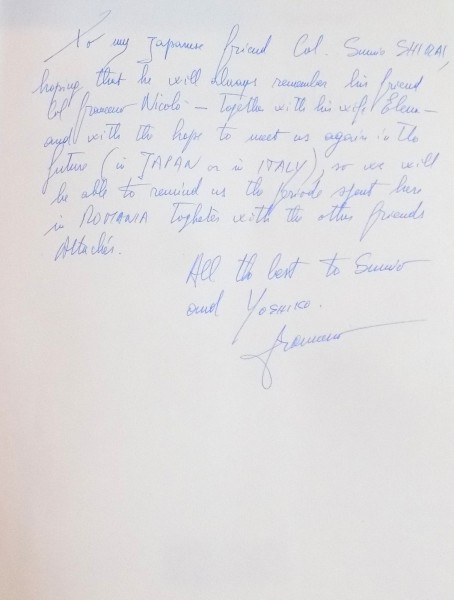 To my Japanese friend Col. Sumio SHIRAI,
hoping that he will always remember his friend
Col Francesco Nicolò – together with his wife Elena –
and with the hope to meet us again in the
future (in JAPAN or in ITALY), so we will
be able to remind us the periode spent here
in ROMANIA togheter with the other friends
Attachés.
All the best to Sumio
and YOSHIKO.